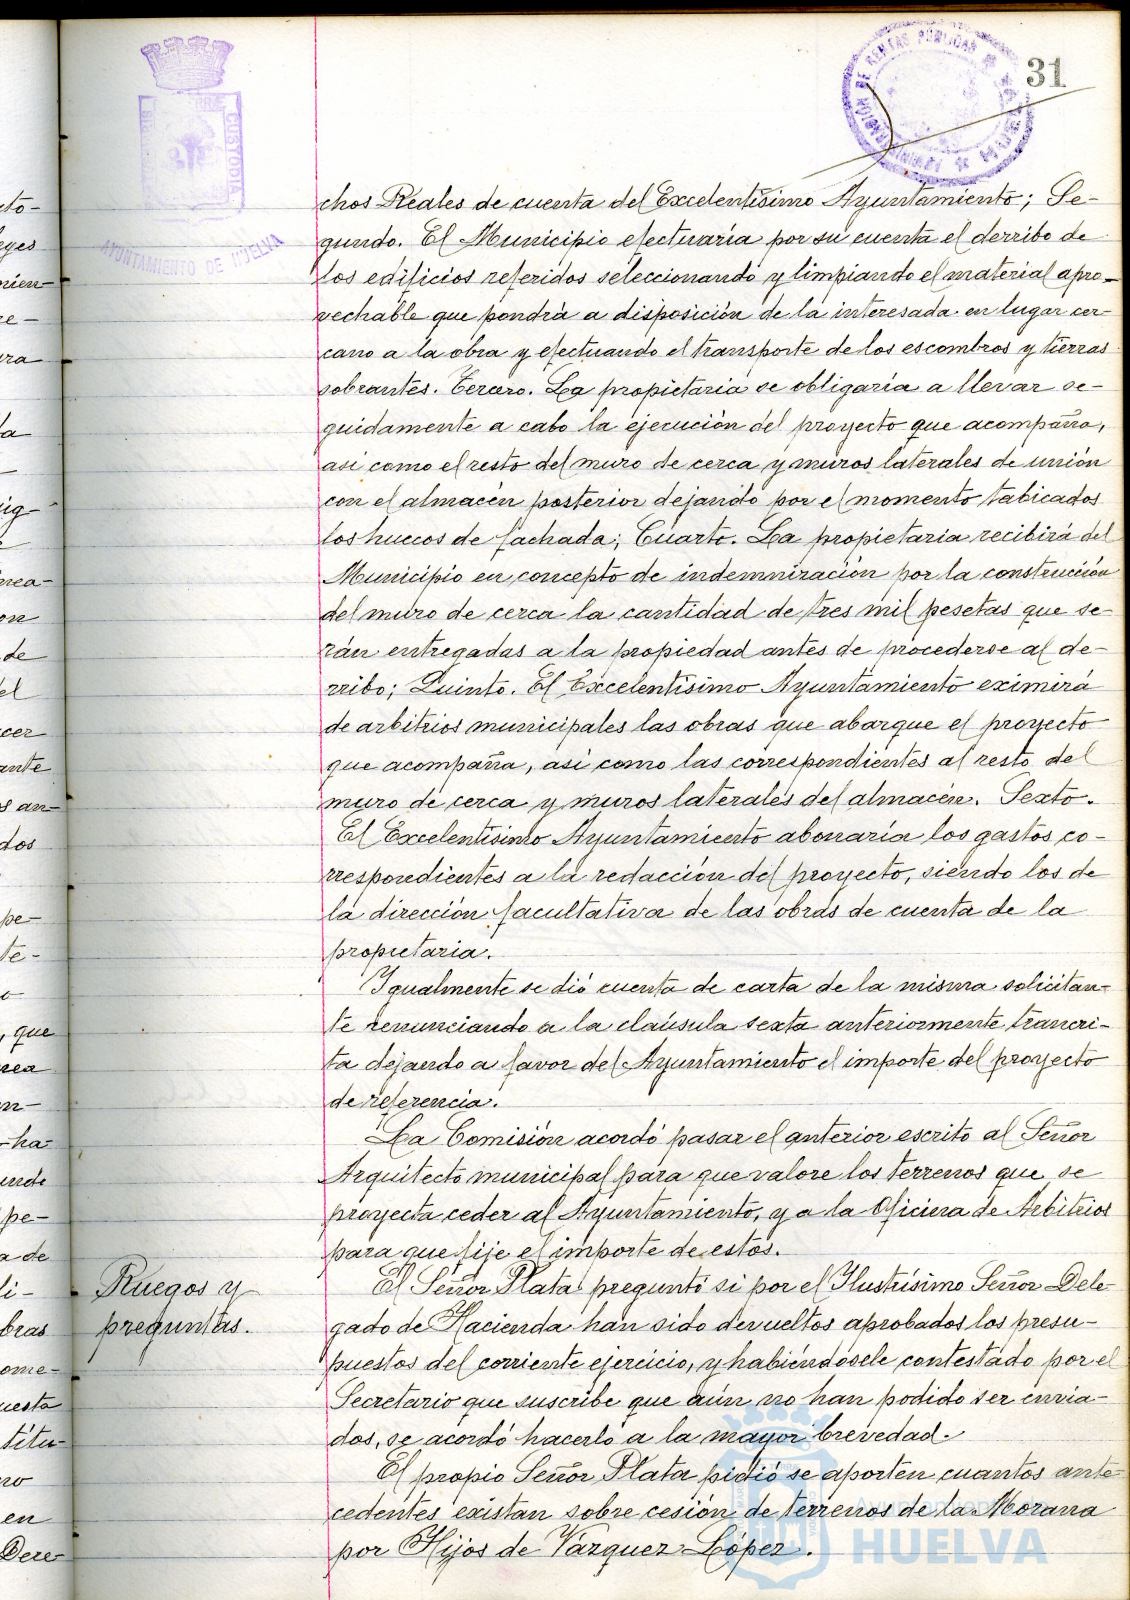 31
AYUNTAMIENTO DE HUELVA
CUSTODIA
chos Reales de cuenta del Excelentísimo Ayuntamiento; Se-
gundo. El Municipio efectuaría por su cuenta el derribo de
los edificios referidos seleccionando y limpiando el material apro-
vechable que pondrá a disposición de la interesada en lugar cer-
cano a la obra y efectuando el transporte de los escombros y tierras
sobrantes. Tercero. La propietaria se obligaría a llevar se-
guidamente a cabo la ejecución del proyecto que acompaña,
asi como el resto del muro de cerca y muros laterales de unión
con el almacén posterior dejando por el momento tabicados
los huecos de fachada; Cuarto. La propietaria recibirá del
Municipio en concepto de indemnización por la construcción
del muro de cerca la cantidad de tres mil pesetas que se-
rán entregadas a la propiedad antes de procederse al de-
rribo; Quinto. El Excelentísimo Ayuntamiento eximirá
de arbitrios municipales las obras que abarque el proyecto
que acompaña, asi como las correspondientes al resto del
muro de cerca y muros laterales del almacén. Sexto.
El Excelentísimo Ayuntamiento abonaría los gastos co-
rrespondientes a la redacción del proyecto, siendo los de
la dirección facultativa de las obras de cuenta de la
propietaria.
Igualmente se dió cuenta de carta de la misma solicitan-
te renunciando a la claúsula sexta anteriormente trancri-
ta dejando a favor del Ayuntamiento el importe del proyecto
de referencia.
La Comisión acordó pasar el anterior escrito al Señor
Arquitecto municipal para que valore los terrenos que se
proyecta ceder al Ayuntamiento, y a la Oficiera de Arbitrios
para que fije el importe de estos.
Ruegos y
preguntas.
El Señor Plata preguntó si por el Ilustrísimo Señor Dele-
gado de Hacienda han sido devueltos aprobados los presu-
puestos del corriente ejercicio, y habiéndosele contestado por el
Secretario que suscribe que aún no han podido ser envia-
dos, se acordó hacerlo a la mayor brevedad.
El propio Señor Plata pidió se aporten cuantos ante-
cedentes existan sobre cesión de terrenos de la Morana
por Hijos de Vázquez López.
HUELVA